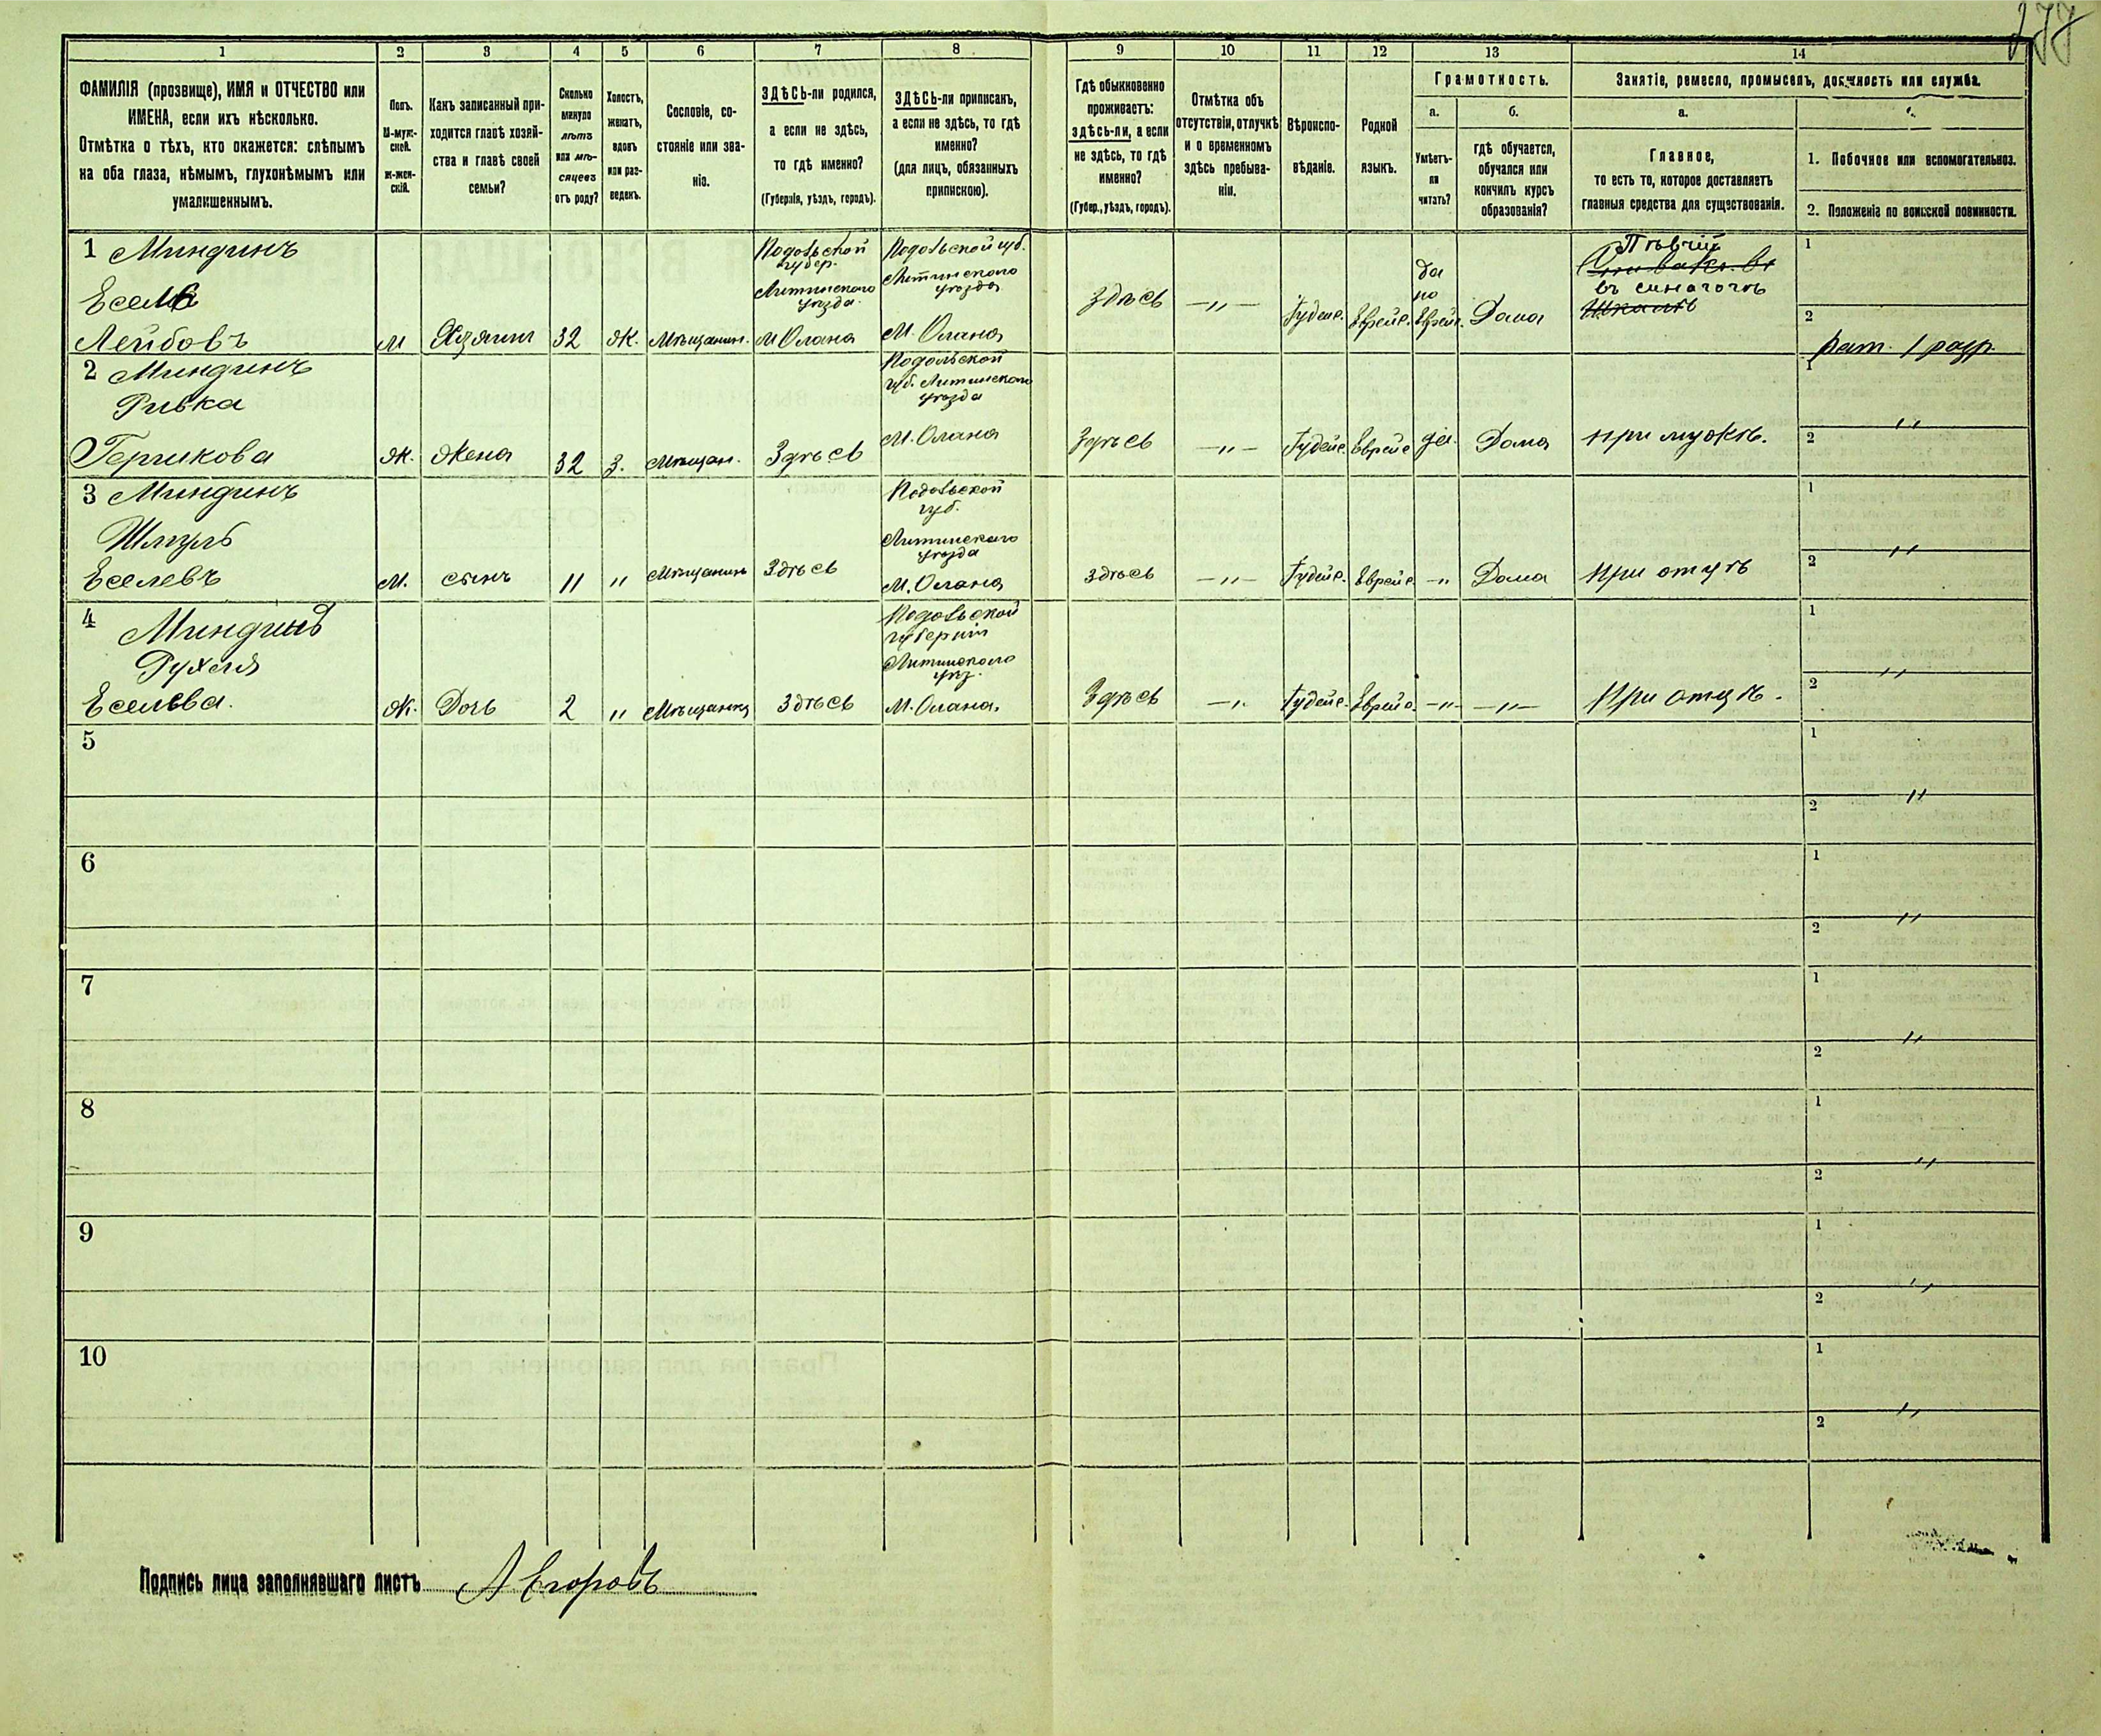 277
1 2 3 4 5 6 7 8 9 10 11 12 13 14
ФАМИЛІЯ (прозвище), ИМЯ и ОТЧЕСТВО или
ИМЕНА, если ихъ нѣсколько.
Отмѣтка о тѣхъ, кто окажется: слѣпымъ
на оба глаза, нѣмымъ, глухонѣмымъ или
умалишеннымъ.
Полъ.
М-муж-
ской.
ж-жен-
скій.
Какъ записанный при-
ходится главѣ хозяй-
ства и главѣ своей
семьи?
Сколько
минуло
лѣтъ
или мѣ-
сяцевъ
отъ роду?
Холостъ,
женатъ,
вдовъ
или раз-
веденъ.
Сословіе, со-
стояніе или зва-
ніе.
ЗДѢСЬ-ли родился,
а если не здѣсь,
то гдѣ именно?
(Губернія, уѣздъ, городъ).
ЗДѢСЬ-ли приписанъ,
а если не здѣсь, то гдѣ
именно?
(для лицъ, обязанныхъ
припискою).
Гдѣ обыкновенно
проживаетъ:
здѣсь-ли, а если
не здѣсь, то гдѣ
именно?
(Губер., уѣздъ, городъ).
Отмѣтка объ
отсутствіи, отлучкѣ
и о временномъ
здѣсь пребыва-
ніи.
Вѣроиспо-
вѣданіе.
Родной
языкъ.
Грамотность.
а.
Умѣетъ-
ли
читать?
б.
гдѣ обучается,
обучался или
кончилъ курсъ
образованія?
Занятіе, ремесло, промыселъ, должность или служба.
а.
Главное,
то есть то, которое доставляетъ
главныя средства для существованія.
1. Побочное или вспомогательное.
2. Положеніе по воинской повинности.
1 Миндинъ
Есель
Лейбовъ
М
Хозяинъ
32
Ж.
Мѣщанин.
Подольской
губер.
Литинского
уѣзда
М Олана
Подольской губ.
Литинского
уѣзда
М. Олана
Здѣсь
—„—
Іудейс.
Еврейс.
да
по
Еврейс.
Дома
Пѣвчій
въ синагогѣ
Школѣ
1
2
Рат. 1 разр.
2 Миндинъ
Ривка
Гершкова
Ж.
Жена
32
З.
Мѣщан.
Здѣсь
Подольской
губ. Литинского
уѣзда
М. Олана
Здѣсь
—„—
Іудейс.
Еврейс
да.
Дома
при мужѣ.
1
„
2
3 Миндинъ
Шмуль
Еселевъ
М.
сынъ
11
„
Мѣщанинъ
Здѣсь
Подольской
губ.
Литинскаго
уѣзда
М. Олана
Здѣсь
—„—
Іудейс.
Еврейс.
—„
Дома
при отцѣ
1
„
2
4 Миндинъ
Рухля
Еселева.
Ж.
Дочь
2
„
Мѣщанка
Здѣсь
Подольской
губерніи
Литинскаго
уѣз.
М. Олана.
Здѣсь
—„
Іудейс.
Еврейс.
—„—
—„—
При отцѣ.
1
„
2
5
1
„
2
6
1
„
2
7
1
„
2
8
1
„
2
9
1
„
2
10
1
„
2
Подпись лица заполнявшаго листъ